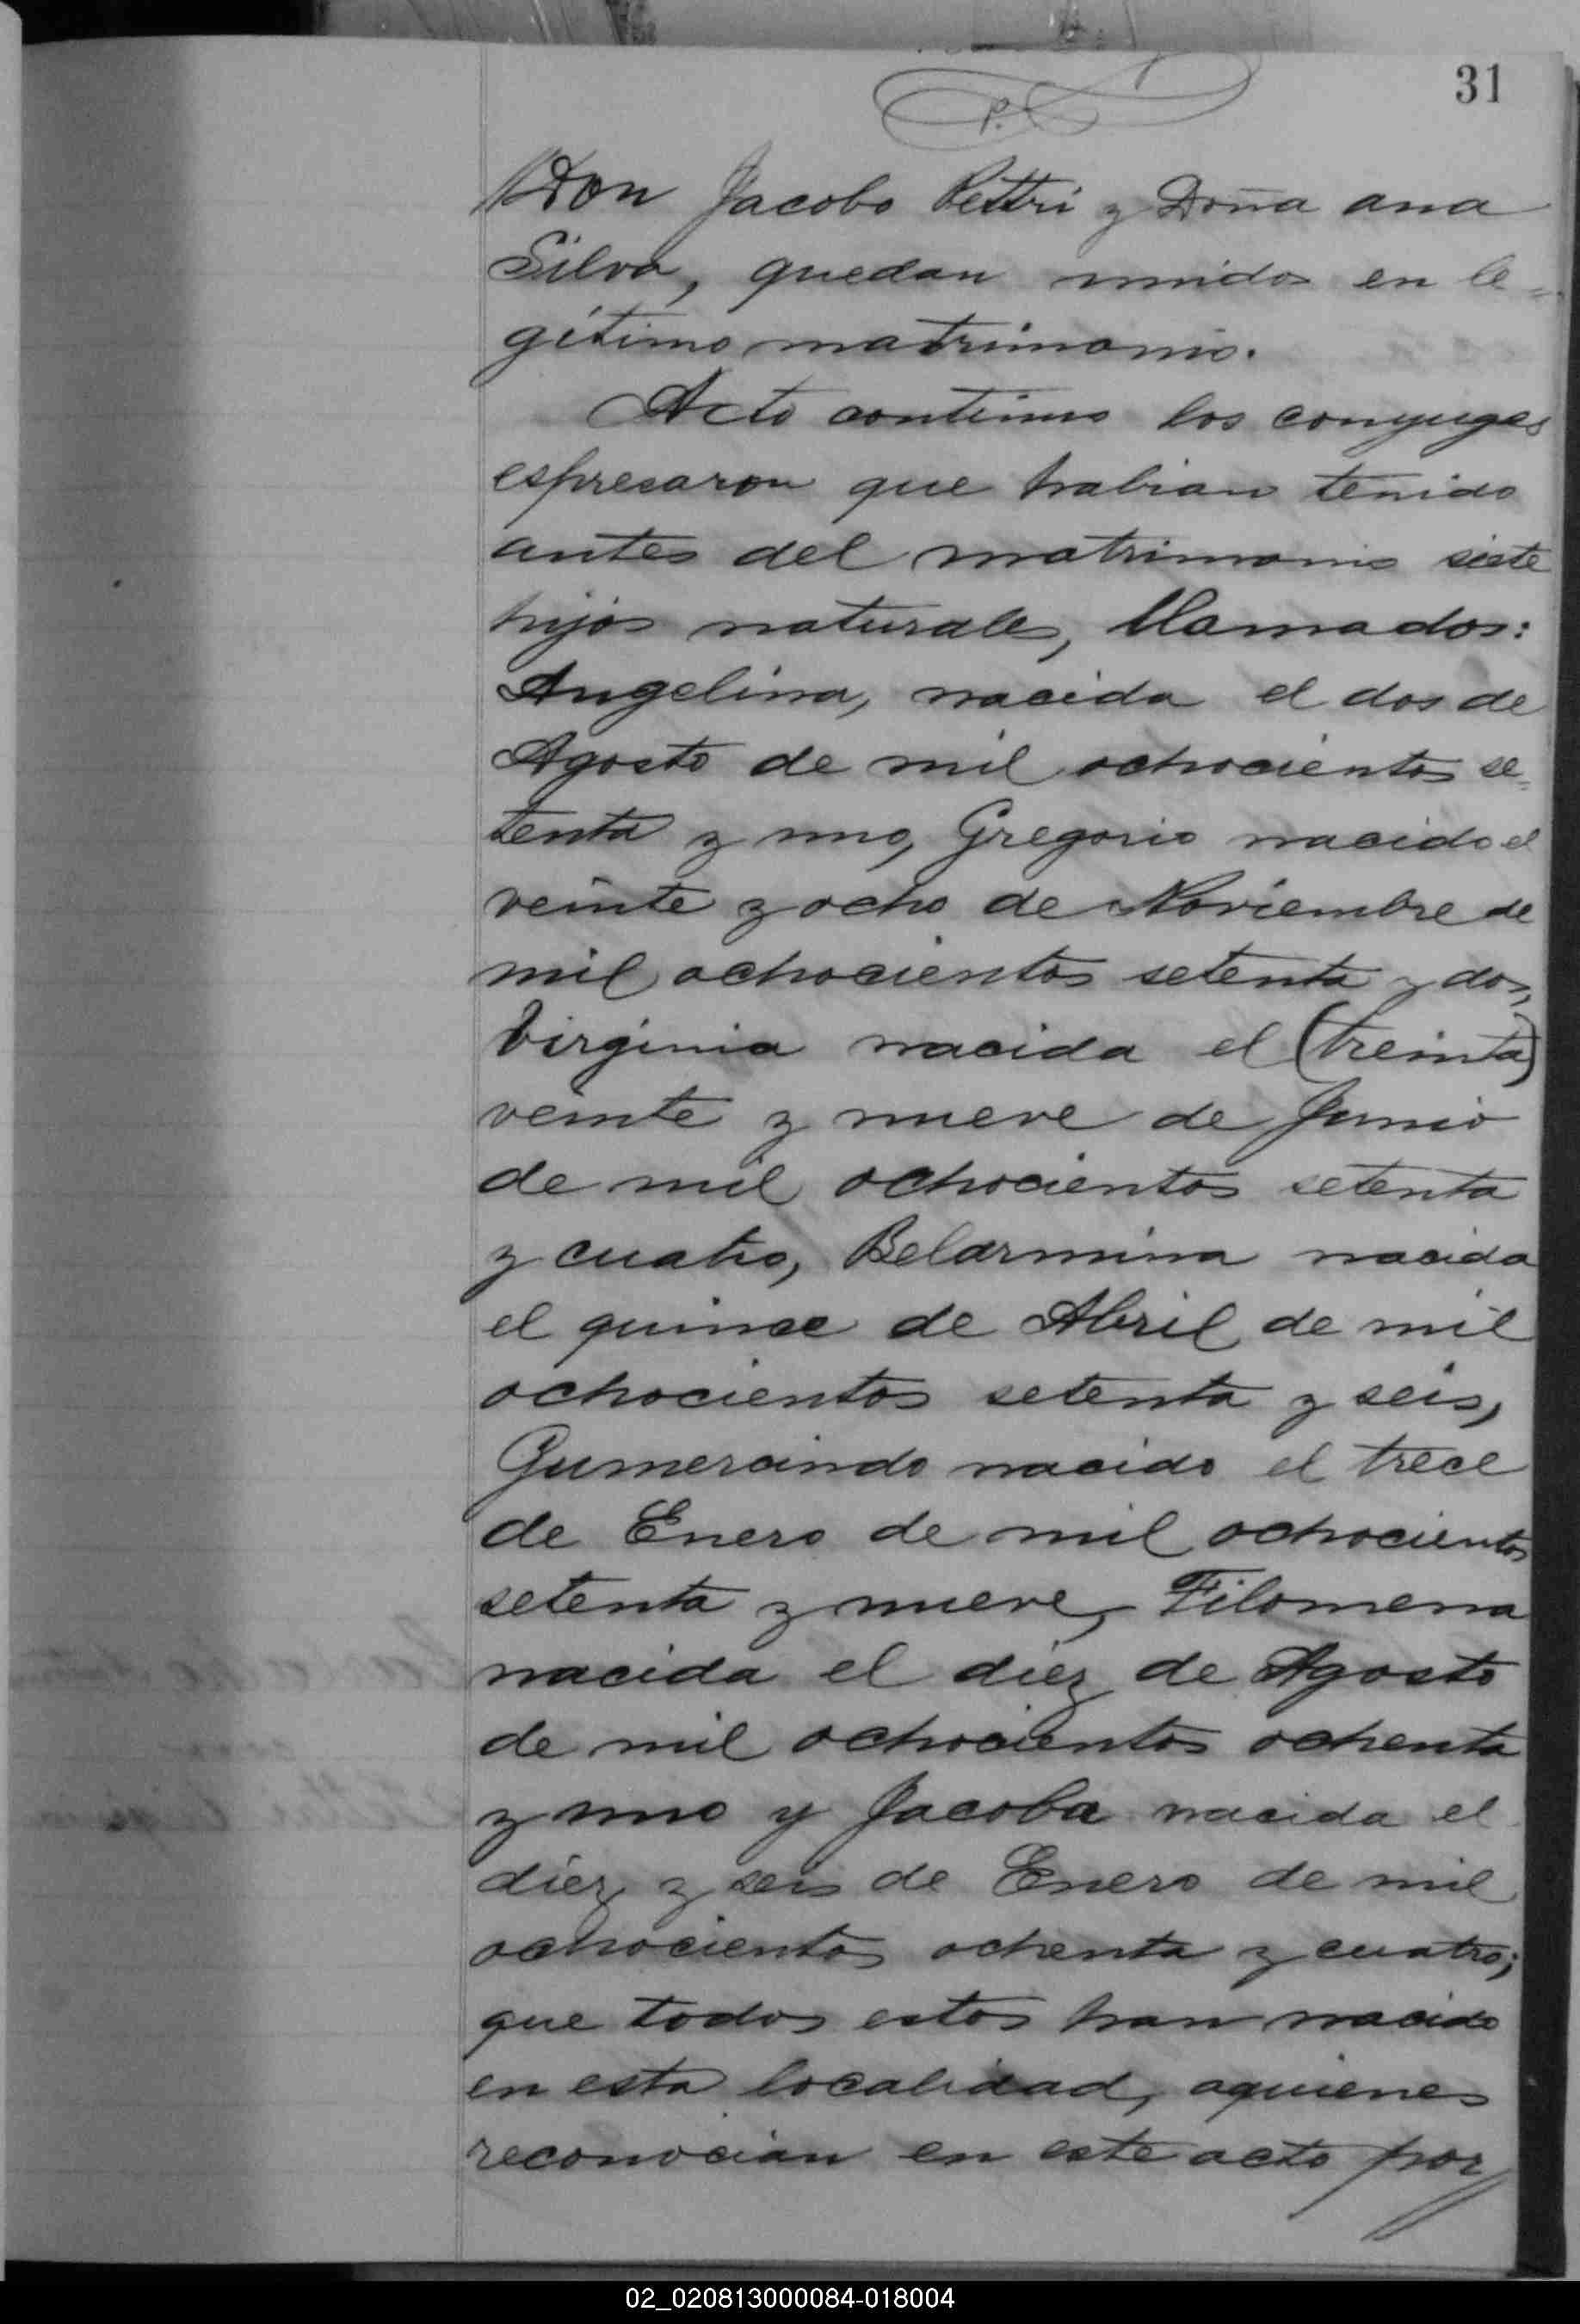 31
P.
Don Jacobo Pettri y Doña ana
Silva, quedan unidos en le=
gítimo matrimonio.
Acto continuo los conyuges
espresaron que habian tenido
antes del matrimonio siete
hijos naturales, llamados:
Angelina, nacida el dos de
Agosto de mil ochocientos se=
tenta y uno, Gregorio nacido el
veinte y ocho de Noviembre de
mil ochocientos setenta y dos,
Virginia nacida el (treinta)
veinte y nueve de Junio
de mil ochocientos setenta
y cuatro, Belarmina nacida
el quince de Abril de mil
ochocientos setenta y seis,
Gumercindo nacido el trece
de Enero de mil ochocientos
setenta y nueve, Filomena
nacida el diez de Agosto
de mil ochocientos ochenta
y uno y Jacoba nacida el
diez y seis de Enero de mil
ochocientos ochenta y cuatro;
que todos estos han nacido
en esta localidad, aquienes
reconocian en este acto por
02_020813000084-018004